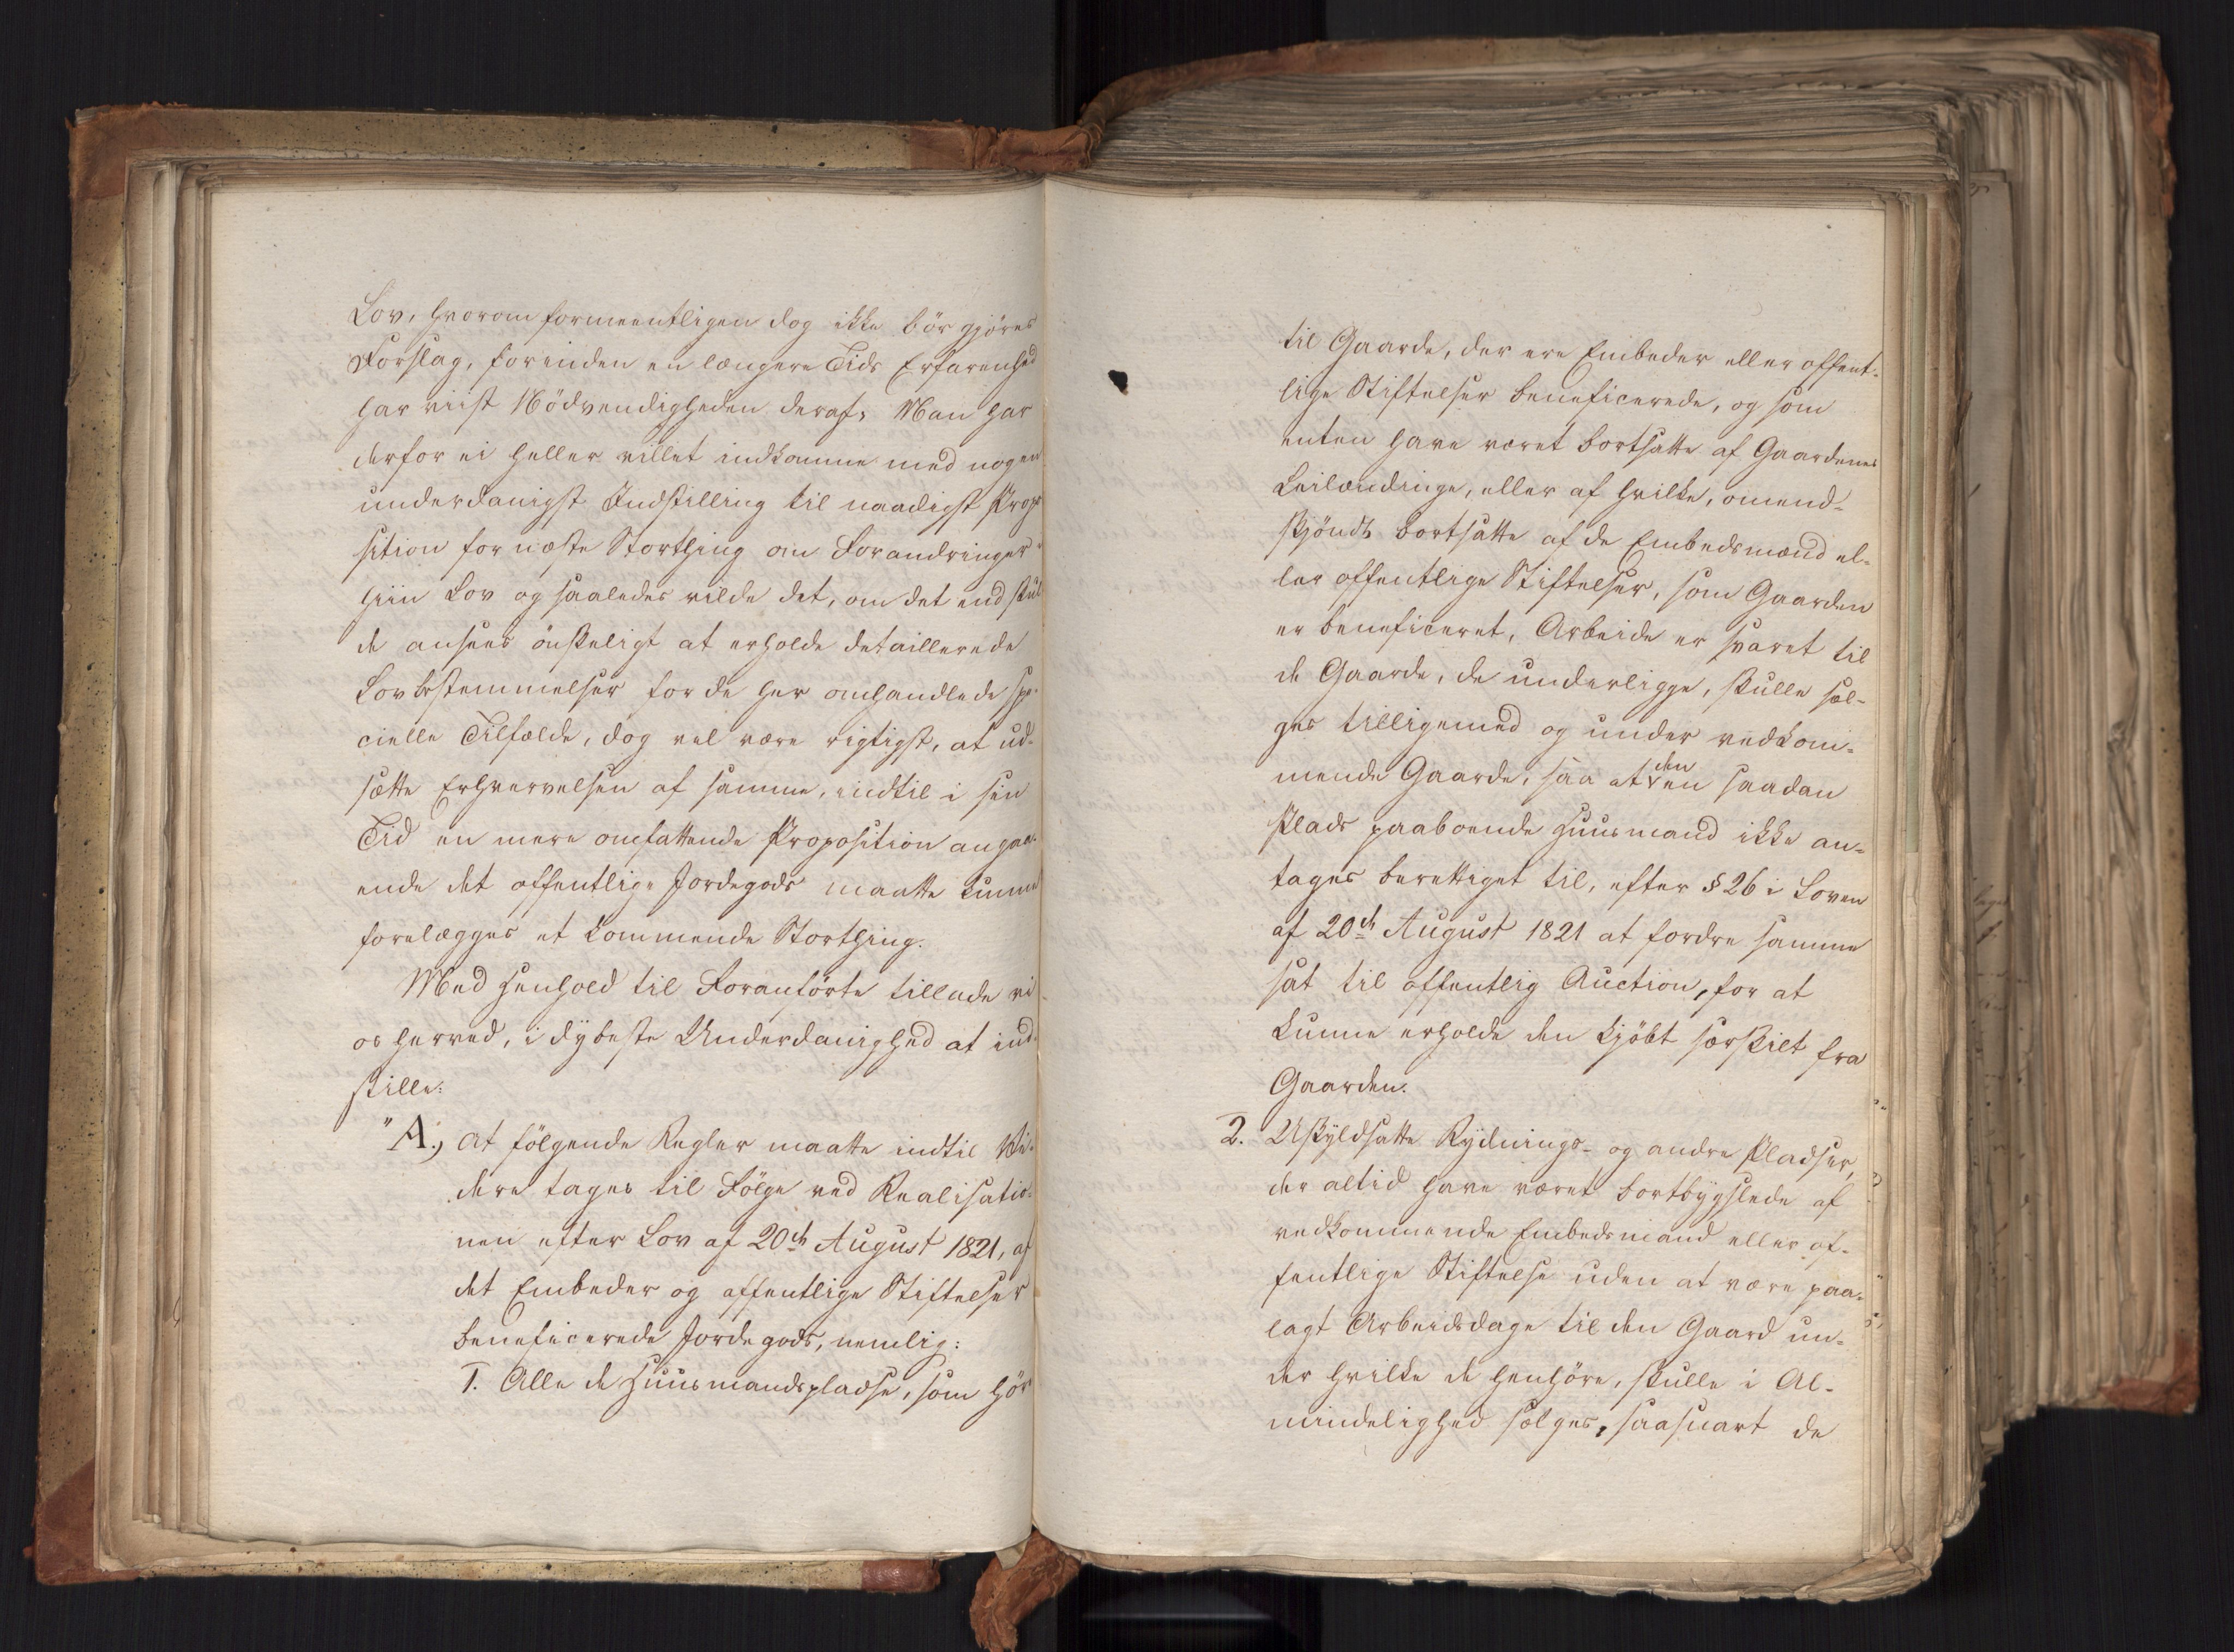 Lov, hvorom formeentligen dog ikke bör gjöres
Forslag, forinden en længere Tids Erfarenhed
har viist Nödvendigheden deraf. Man har
derfor ei heller villet indkomme med nogen
underdanigst Indstilling til naadigst Propo
sition for næste Storthing om Forandringer i
hiin Lov og saaledes vilde det, om det end skul
de ansees önskeligt at erholde detaillerede
Lovbestemmelser for de her omhandlede spe-
cielle Tilfælde, dog vel være rigtigst, at ud-
sætte Erhvervelsen af samme, indtil i sin
Tid en mere omfattende Proposition angaa-
ende det offentlige Jordegods maatte kunne
forelægges et kommende Storthing.
Med Henhold til Foranförte tillade vi
os herved, i dybeste Underdanighed at ind-
stille:
"A., at fölgende Regler maatte indtil Vi-
dere tages til Fölge ved Realisatio-
nen efter Lov af 20de August 1821, af
det Embeder og offentlige Stiftelser
beneficerede Jordegods, nemlig:
1. Alle de Huusmandspladse, som hör
til Gaarde, der ere Embeder eller offent-
lige Stiftelser beneficerede, og som
enten have været bortsatte af Gaardenes
Leilændinge, eller af hvilke, omend-
skjöndt bortsatte af de Embedsmænd el-
ler offentlige Stiftelser, som Gaarden
er beneficeret, Arbeide er svaret til
de Gaarde, de underligge, skulle sæl-
ges tilligemed og under vedkom-
mende Gaarde, saa at den en saadan
Plads paaboende Huusmand ikke an-
tages berettiget til, efter § 26 i Loven
af 20de August 1821 at fordre samme
sat til offentlig Auction, for at
kunne erholde den kjöbt særskilt fra
Gaarden.
2. Uskyldsatte Rydnings- og andre Pladser,
der altid have været bortbygslede af
vedkommende Embedsmand eller of-
fentlige Stiftelse uden at være paa-
lagt Arbeidsdage til den Gaard un-
der hvilke de henhöre, skulle i Al-
mindelighed sælges, saasnart de